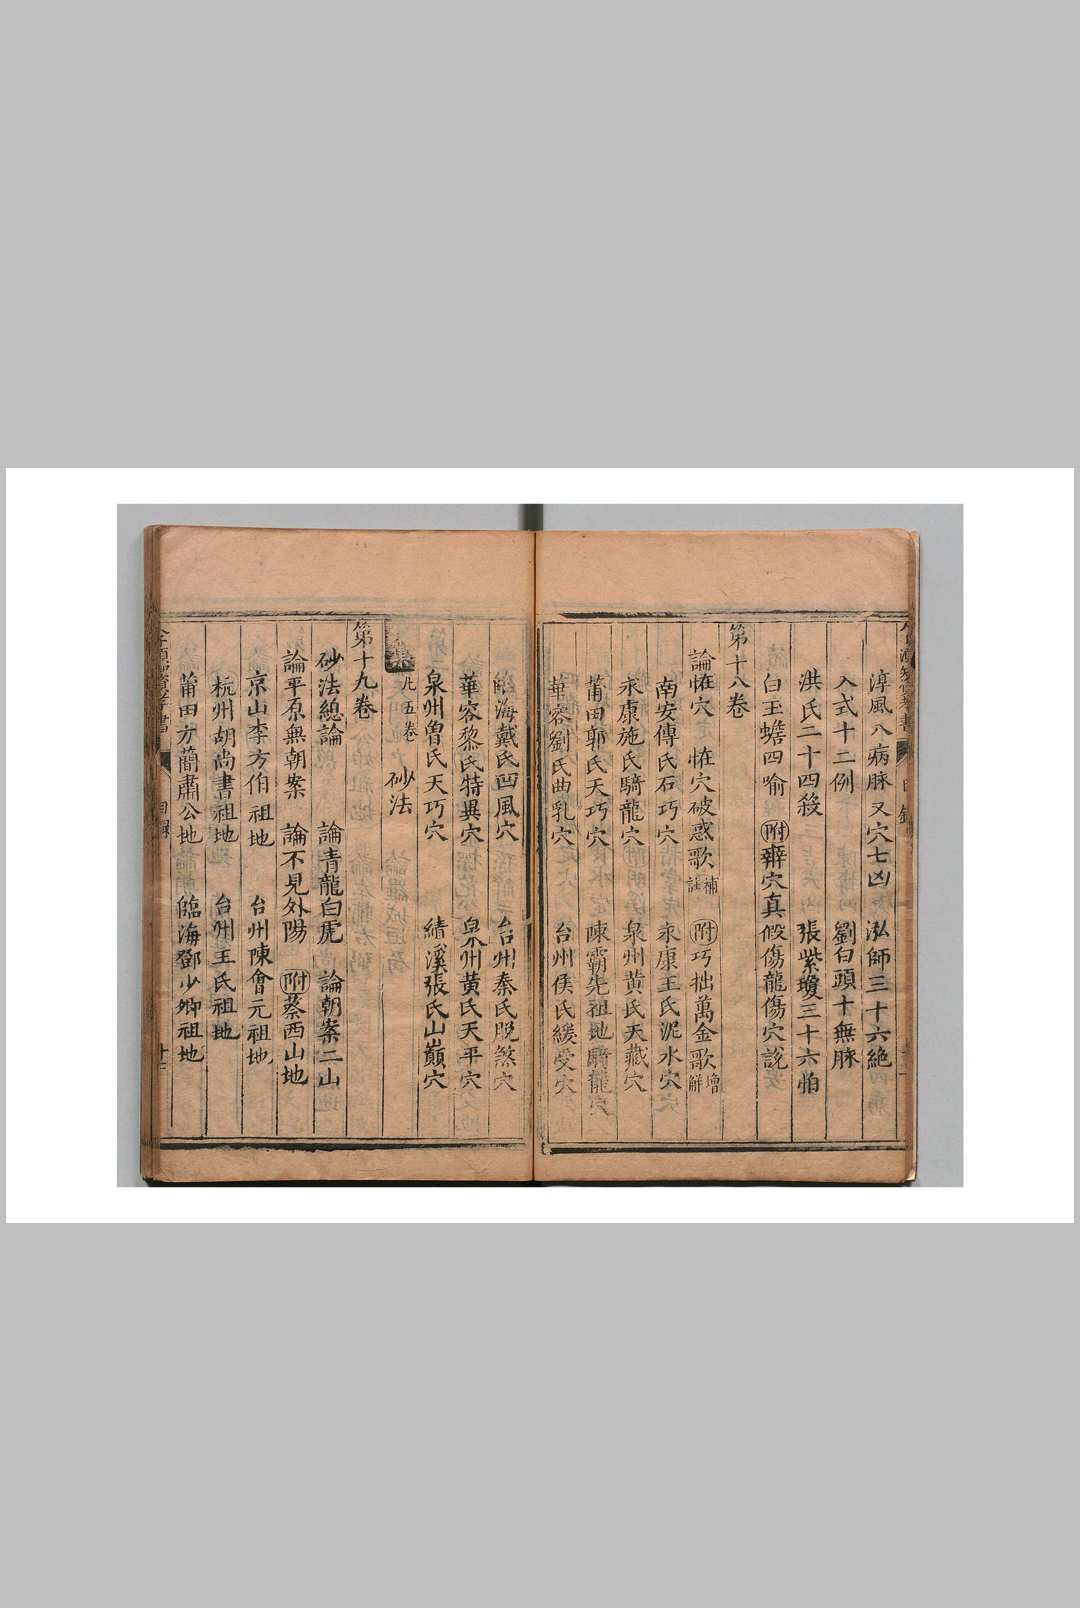 淳風八病脉又穴七凶 泓師三十六絶
入式十二例 劉白頭十無脉
洪氏二十四殺 張紫瓊三十六怕
白玉蟾四喻 附辨穴真假傷龍傷穴說
第十八卷
論恠穴 恠穴破惑歌補註 附巧拙萬金歌增解
南安傅氏石巧穴 永康王氏泥水穴
永康施氏騎龍穴 泉州黄氏天藏穴
莆田耶氏天巧穴 陳霸先祖地騎龍穴
華容劉氏曲乳穴 台州侯氏緩受穴
臨海戴氏凹風穴 台州秦氏脫煞穴
華容黎氏特異穴 泉州黄氏天平穴
泉州曾氏天巧穴 績溪張氏山巔穴
凡五卷 砂法
第十九卷
砂法總論 論青龍白虎 論朝案二山
論平原無朝案 論不見外陽 附蔡西山地
京山李方伯祖地 台州陳會元祖地
杭州胡尚書祖地 台州王氏祖地
莆田方簡肅公地 臨海鄧少卿祖地
目録